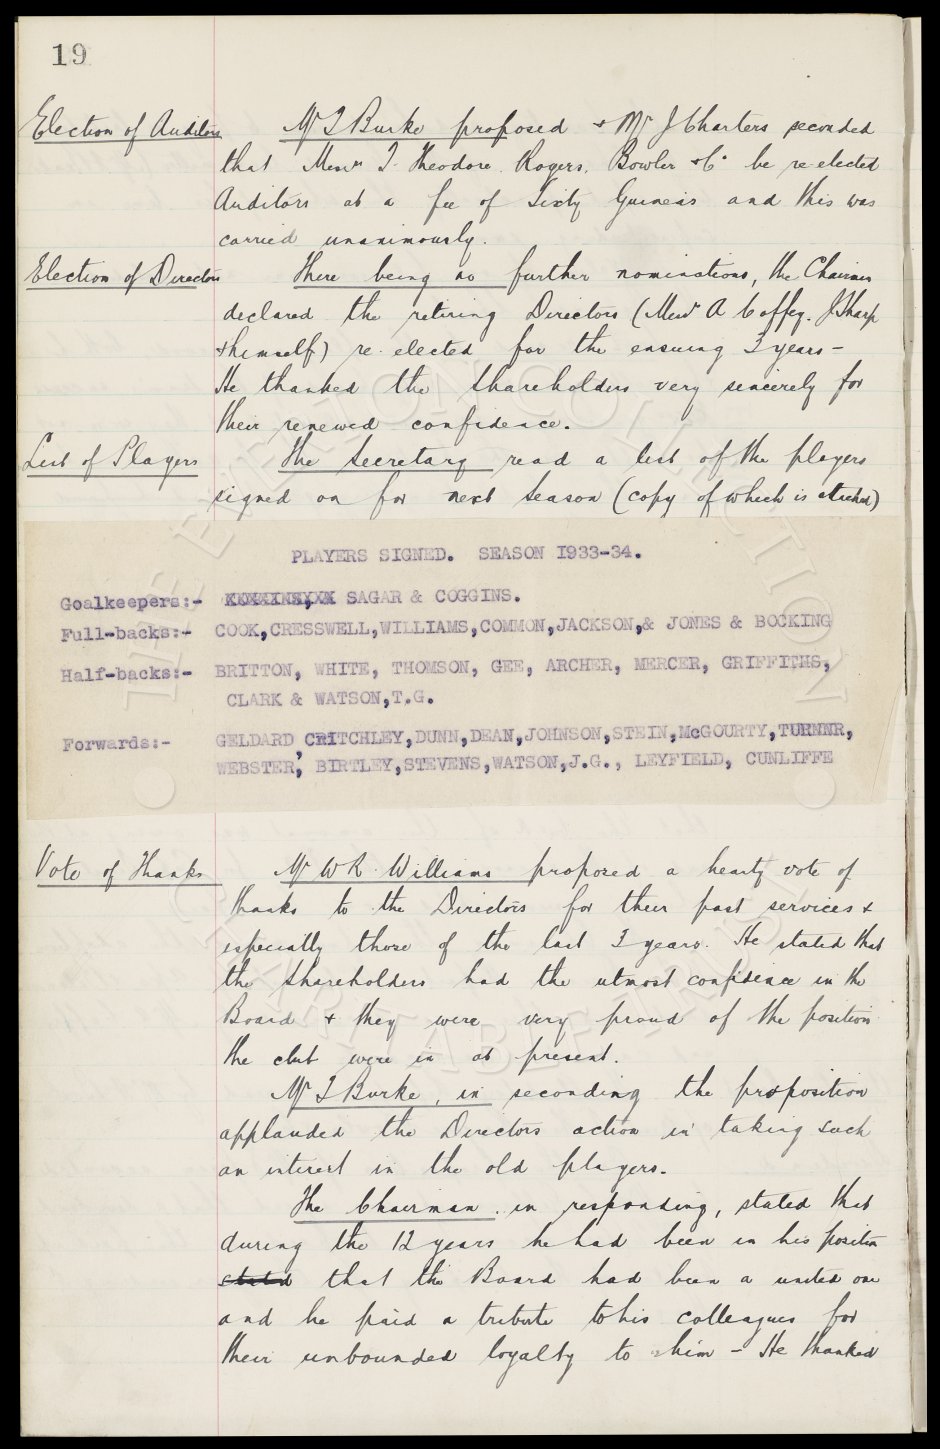 19
Election of Auditors
Mr T Burke proposed + Mr J Charters seconded
that Messrs T. Theodore Rogers, Bowler & Co be re-elected
Auditors at a fee of Sixty Guineas and this was
carried unanimously.
Election of Directors
There being no further nominations, the Chairman
declared the retiring Directors (Messrs A Coffey. J Sharp
+ himself) re-elected for the ensuing 3 years -
He thanked the Shareholders very sincerely for
their renewed confidence.
List of Players
The Secretary read a list of the players
signed on for next season (copy of which is attached)
PLAYERS SIGNED. SEASON 1933-34.
Goalkeepers:- SAGAR & COGGINS.
Full-backs:- COOK,CRESSWELL,WILLIAMS,COMMON,JACKSON,& JONES & BOCKING
Half-backs:- BRITTON, WHITE, THOMSON, GEE, ARCHER, MERCER, GRIFFITHS,
CLARK & WATSON,T.G.
Forwards:- GELDARD, CRITCHLEY,DUNN,DEAN,JOHNSON,STEIN,McGOURTY,TURNNR,
WEBSTER, BIRTLEY,STEVENS,WATSON,J.G., LEYFIELD, CUNLIFFE
Vote of Thanks
Mr W R Williams proposed a hearty vote of
thanks to the Directors for their past services +
especially those of the last 3 years. He stated that
the Shareholders had the utmost confidence in the
Board + they were very proud of the position
the club were in at present.
Mr T Burke, in seconding the proposition
applauded the Directors action in taking such
an interest in the old players.
The Chairman in responding, stated that
during the 12 years he had been in his position
stated that the Board had been a united one
and he paid a tribute to his colleagues for
their unbounded loyalty to him - He thanked
THE EVERTON COLLECTION
CHARITABLE TRUST